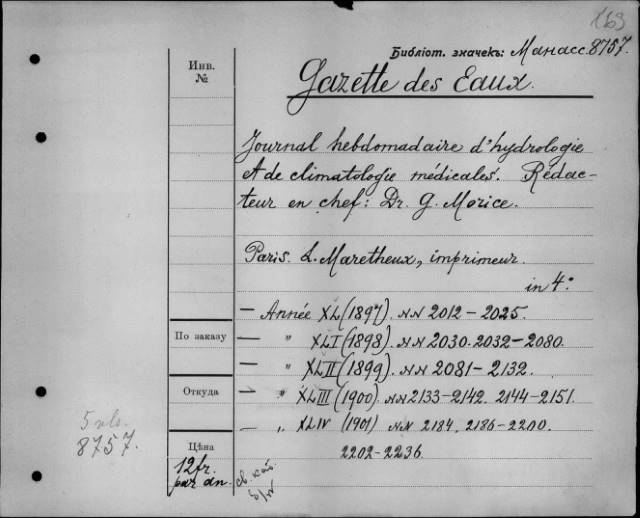 163
Библіот. значекъ: Манасс. 8757.
Инв.
№
Gazette des Eaux.
Journal hebdomadaire d'hydrologie
et de climatologie médicales. Rédac-
teur en chef: Dr. G. Morice.
Paris. L. Maretheux, imprimeur.
in 4°
— Année XL (1897). NN 2012-2025.
По заказу
— " XLI (1898). NN 2030. 2032-2080.
— " XLII (1899). NN 2081-2132.
Откуда
— " XLIII (1900) NN 2133-2142. 2144-2151.
— " XLIV (1901) NN 2184, 2186-2200.
2202-2236.
5 vls.
8757.
Цѣна
12 fr.
par an.